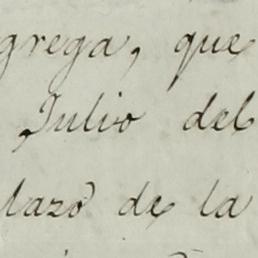 grega, que
Julio del
lazo de la